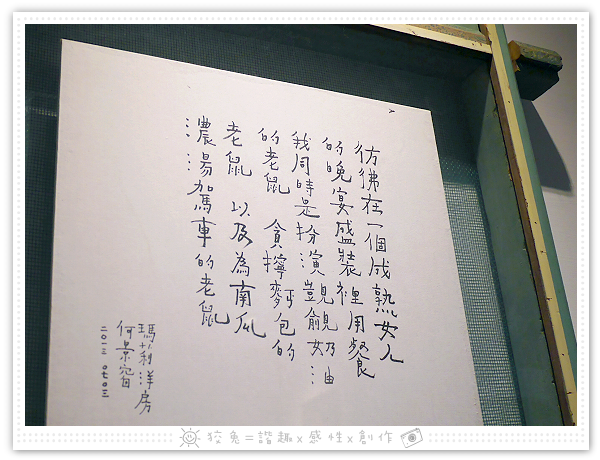 彷彿在一個成熟女人
的晚宴盛裝裡用餐
我同時是扮演覬覦奶油
的老鼠 貪擰麵包的
老鼠 以及為南瓜
濃湯駕車的老鼠
瑪莉洋房
何景窗
二〇一二 〇七〇三
狡兔=諧趣x感性x創作